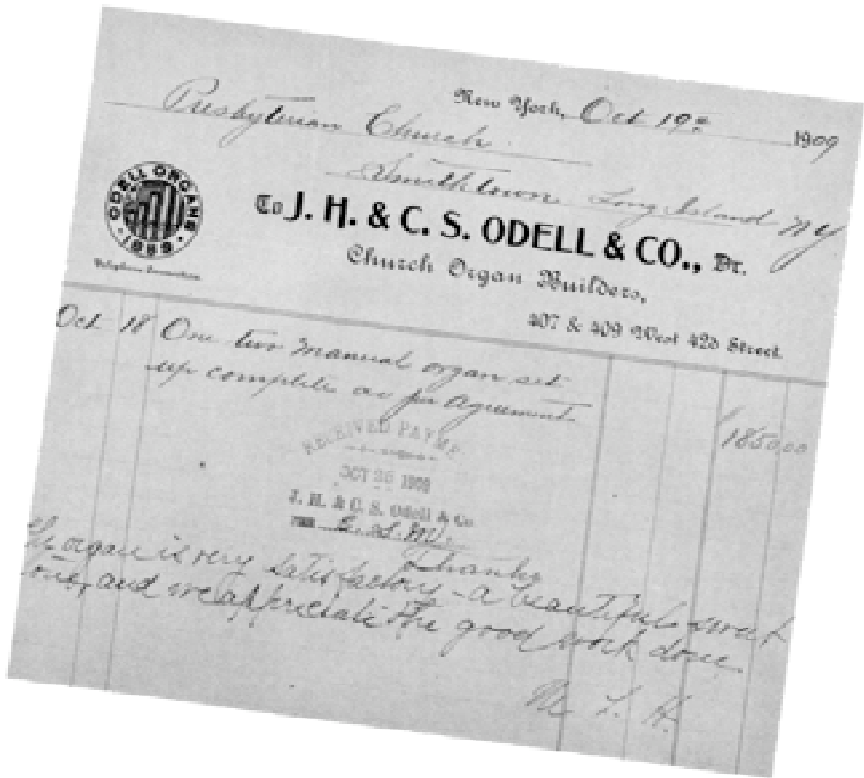 New York, Oct 19th 1909
Presbyterian Church.
Smithtown, Long Island NY
ODELL ORGANS
· 1859 ·
To J. H. & C. S. ODELL & CO., Dr.
Church Organ Builders,
407 & 409 West 42d Street.
Oct 18 One two manual organ set
up complete as per Agreement 1850.00
RECEIVED PAYMT
OCT 26 1909
J. H. & C. S. Odell & Co
PER
Thanks
organ is very satisfactory - a beautiful sweet
one, and we appreciate the good work done.